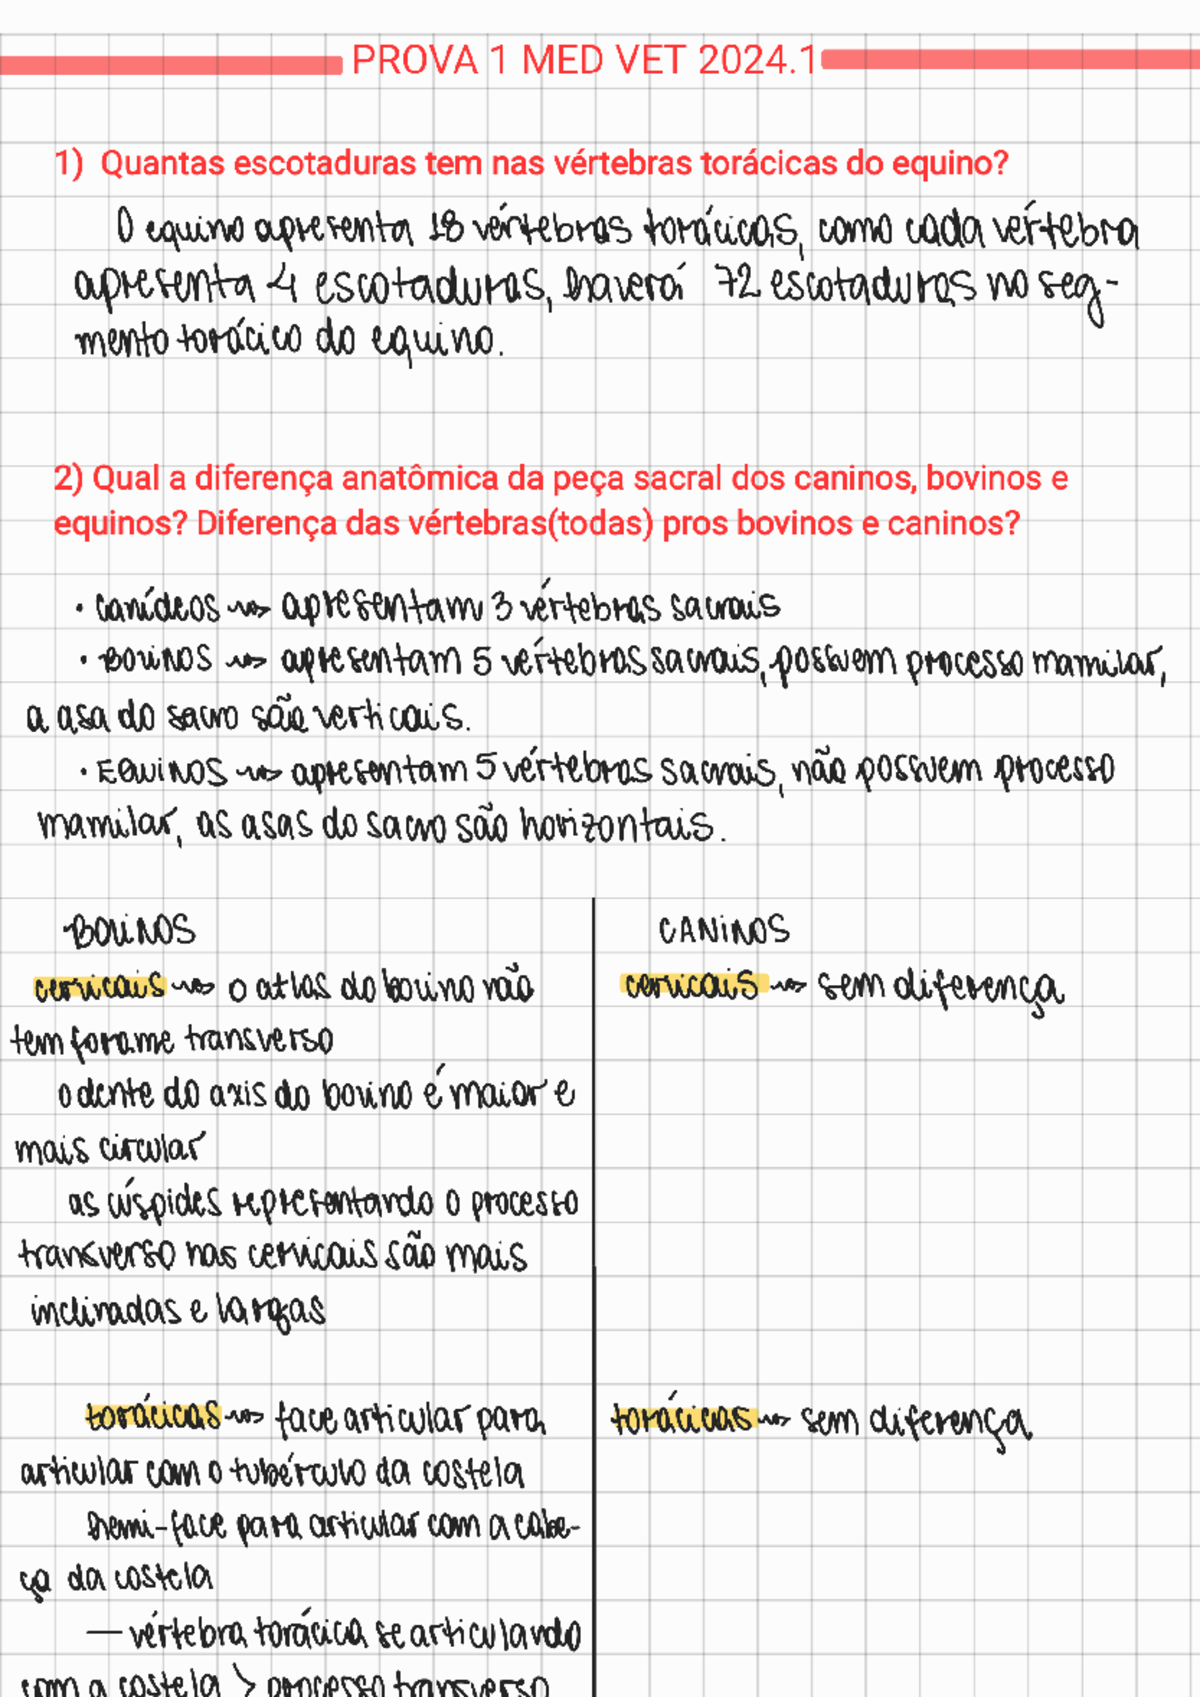 PROVA 1 MED VET 2024.1
1) Quantas escotaduras tem nas vértebras torácicas do equino?
O equino apresenta 18 vértebras torácicas, como cada vértebra
apresenta 4 escotaduras, haverá 72 escotaduras no seg-
mento torácico do equino.
2) Qual a diferença anatômica da peça sacral dos caninos, bovinos e
equinos? Diferença das vértebras(todas) pros bovinos e caninos?
• canídeos ~> apresentam 3 vértebras sacrais
• BOVINOS ~> apresentam 5 vértebras sacrais, possuem processo mamilar,
a asa do sacro são verticais.
• EQUINOS ~> apresentam 5 vértebras sacrais, não possuem processo
mamilar, as asas do sacro são horizontais.
BOVINOS
cervicais ~> o atlas do bovino não
tem forame transverso
o dente do axis do bovino é maior e
mais circular
as cúspides representando o processo
transverso nas cervicais são mais
inclinadas e largas
torácicas ~> face articular para
articular com o tubérculo da costela
hemi-face para articular com a cabe-
ça da costela
— vértebra torácica se articulando
com a costela > processo transverso
CANINOS
cervicais ~> sem diferença
torácicas ~> sem diferença